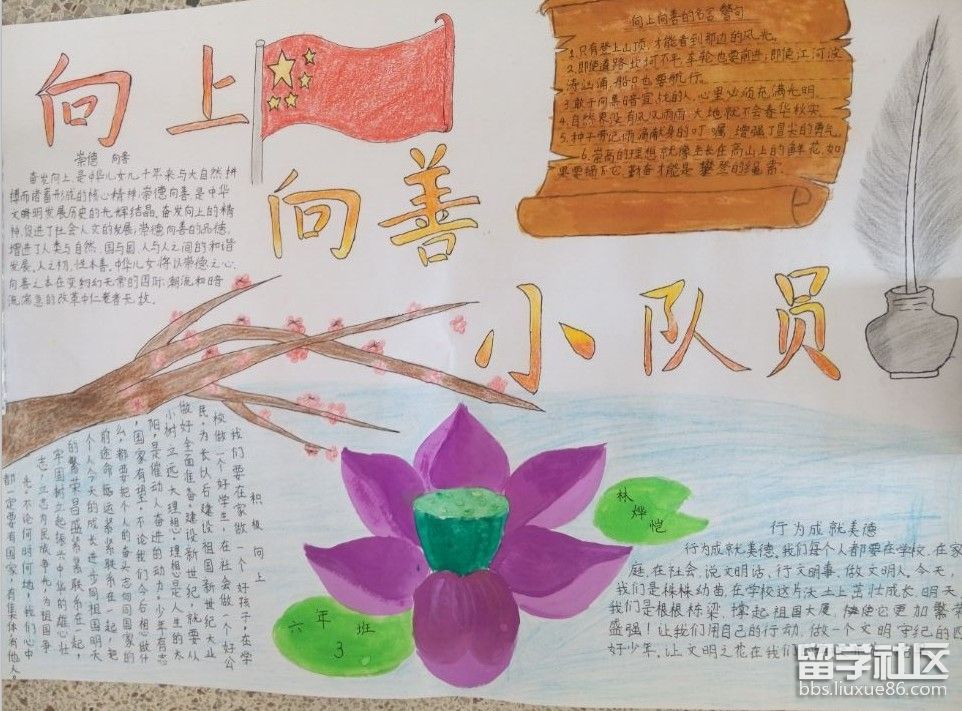 向上
向善
小队员
崇德 向善
奋发向上是中华儿女几千年来与大自然拼
搏而诸蓄形成的核心精神;崇德向善是中华
文明发展历史的光辉结晶。奋发向上的精
神,促进了社会人文的发展;崇德向善的品德,
增进了人类与自然、国与国、人与人之间的和谐
发展。人之初,性本善。中华儿女将以崇德之心、
向善之本在变幻的国际潮流和暗
流湍急的改革中仁者无敌。
向上向善的名言警句
1.只有登上山顶,才能看到那边的风光。
2.即使道路坎坷不平,车轮也要前进;即使江河波
涛汹涌,船只也要航行。
3.敢于向黑暗宣战的人,心里必须充满光明。
4.自然界没有风风雨雨,大地就不会春华秋实。
5.种子牢记雨滴献身的叮嘱,增强了冒尖的勇气。
6.崇高的理想就像生长在高山上的鲜花。如
果要摘下它,勤奋才能是攀登的绳索。
积极向上
我们要在家做一个好孩子,在学
校做一个好学生,在社会做一个好公
民,为长大以后建设祖国新世纪大业
做好全面准备。建设新世纪,就要从
小树立远大理想。理想是人生的太
阳,是催动人奋进的动力。少年有志,
国家有望。不论我们今后想做什
么,都要把个人的奋斗志向同国家的
前途命运紧紧联系在一起,把
个人今天的成长进步同祖国明天
的繁荣昌盛紧紧联系在一起,
牢固树立起振兴中华的雄心壮
志,立志为民族争光,为祖国争
光。不论何时何地,我们心中
都一定要有国家,有集体,有他人。
林烨恺
六年
3班
行为成就美德
行为成就美德。我们每个人都要在学校、在家
庭、在社会,说文明话、行文明事、做文明人。今天,
我们是棵棵幼苗,在学校这片沃土上茁壮成长。明天
我们是根根栋梁,撑起祖国大厦,使她它更加繁荣
盛强!让我们用自己的行动,做一个文明守纪的四
好少年。让文明之花在我们
留学社区
bbs.liuxue86.com